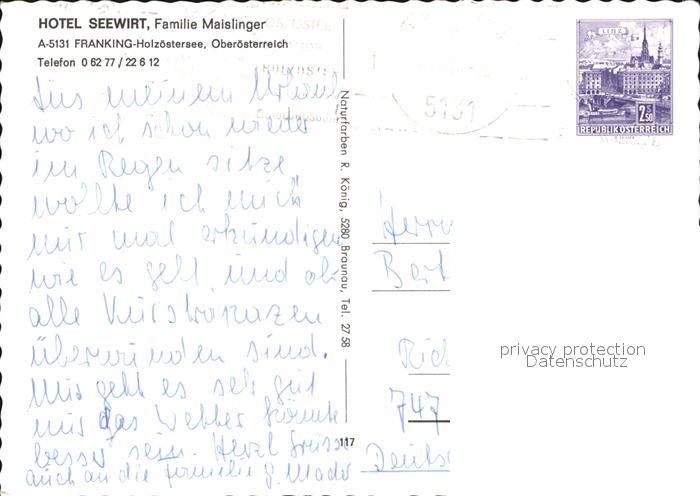 HOTEL SEEWIRT, Familie Maislinger
A-5131 FRANKING-Holzöstersee, Oberösterreich
Telefon 0 62 77 / 22 6 12
Aus meinem Urlaub
wo ich schon wieder
im Regen sitze
wollte ich mich
mir mal erkundigen
wie es geht und ob
alle Kurstrapazen
überwunden sind.
Mir geht es seh gut
nur das Wetter könnte
besser sein. Herzl Grüsse
auch an die Familie
Naturfarben R. König, 5280 Braunau, Tel. 27 58
117
5131
LINZ
2 S 50
REPUBLIK ÖSTERREICH
Herrn
Bert
Rich
747
Deutsc
privacy protection
Datenschutz